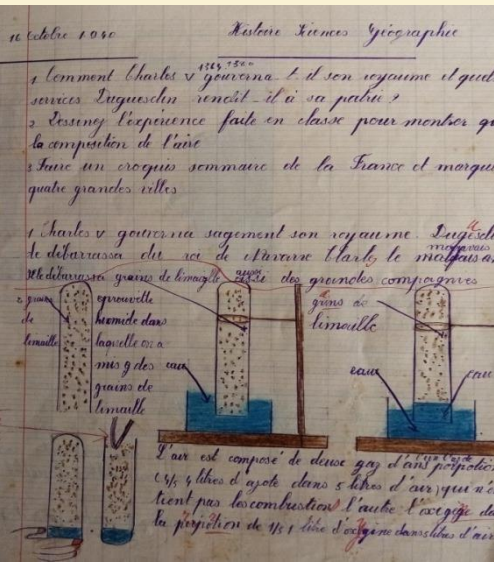 16 Octobre 1940 Histoire Sciences Géographie
1364 1380
1 Comment Charles V gouverna t il son royaume et quel
services Duguesclin rendit-il à sa patrie ?
2 Dessinez l'expérience faite en classe pour montrer q
la composition de l'aire
3 Faire un croquis sommaire de la France et marque
quatre grandes villes
1 Charles V gouverna sagement son royaume. Dugescl
le débarrassa du roi de Navarre Charles le mauvais
il le débarrassa aussi des grandes compagnies
grains de limaille
grains
de
limaille
eprouvette
humide dans
laquelle on a
mis g des
grains de
limaille
eau
grins de
limaille
eau
eau
L'air est composé de deux gaz d'ans porpotion
(4/5 4 litres d'azote dans 5 litres d'air) qui n'e
tient pas les combustion l'autre l'oxegige da
la porpotion de 1/5 1 litre d'oxigine dans 5 litres d'air